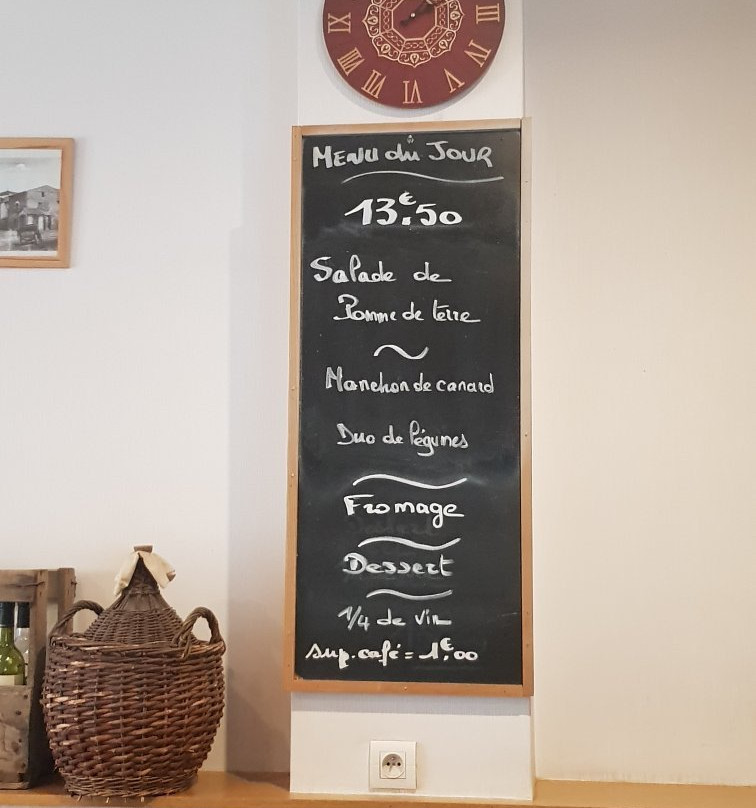 IX
VIII
VII
VI
V
IV
III
MENU du JOUR
13€.50
Salade de
Pomme de terre
Manchon de canard
Duo de légumes
Fromage
Dessert
1/4 de vin
sup. café = 1€.00